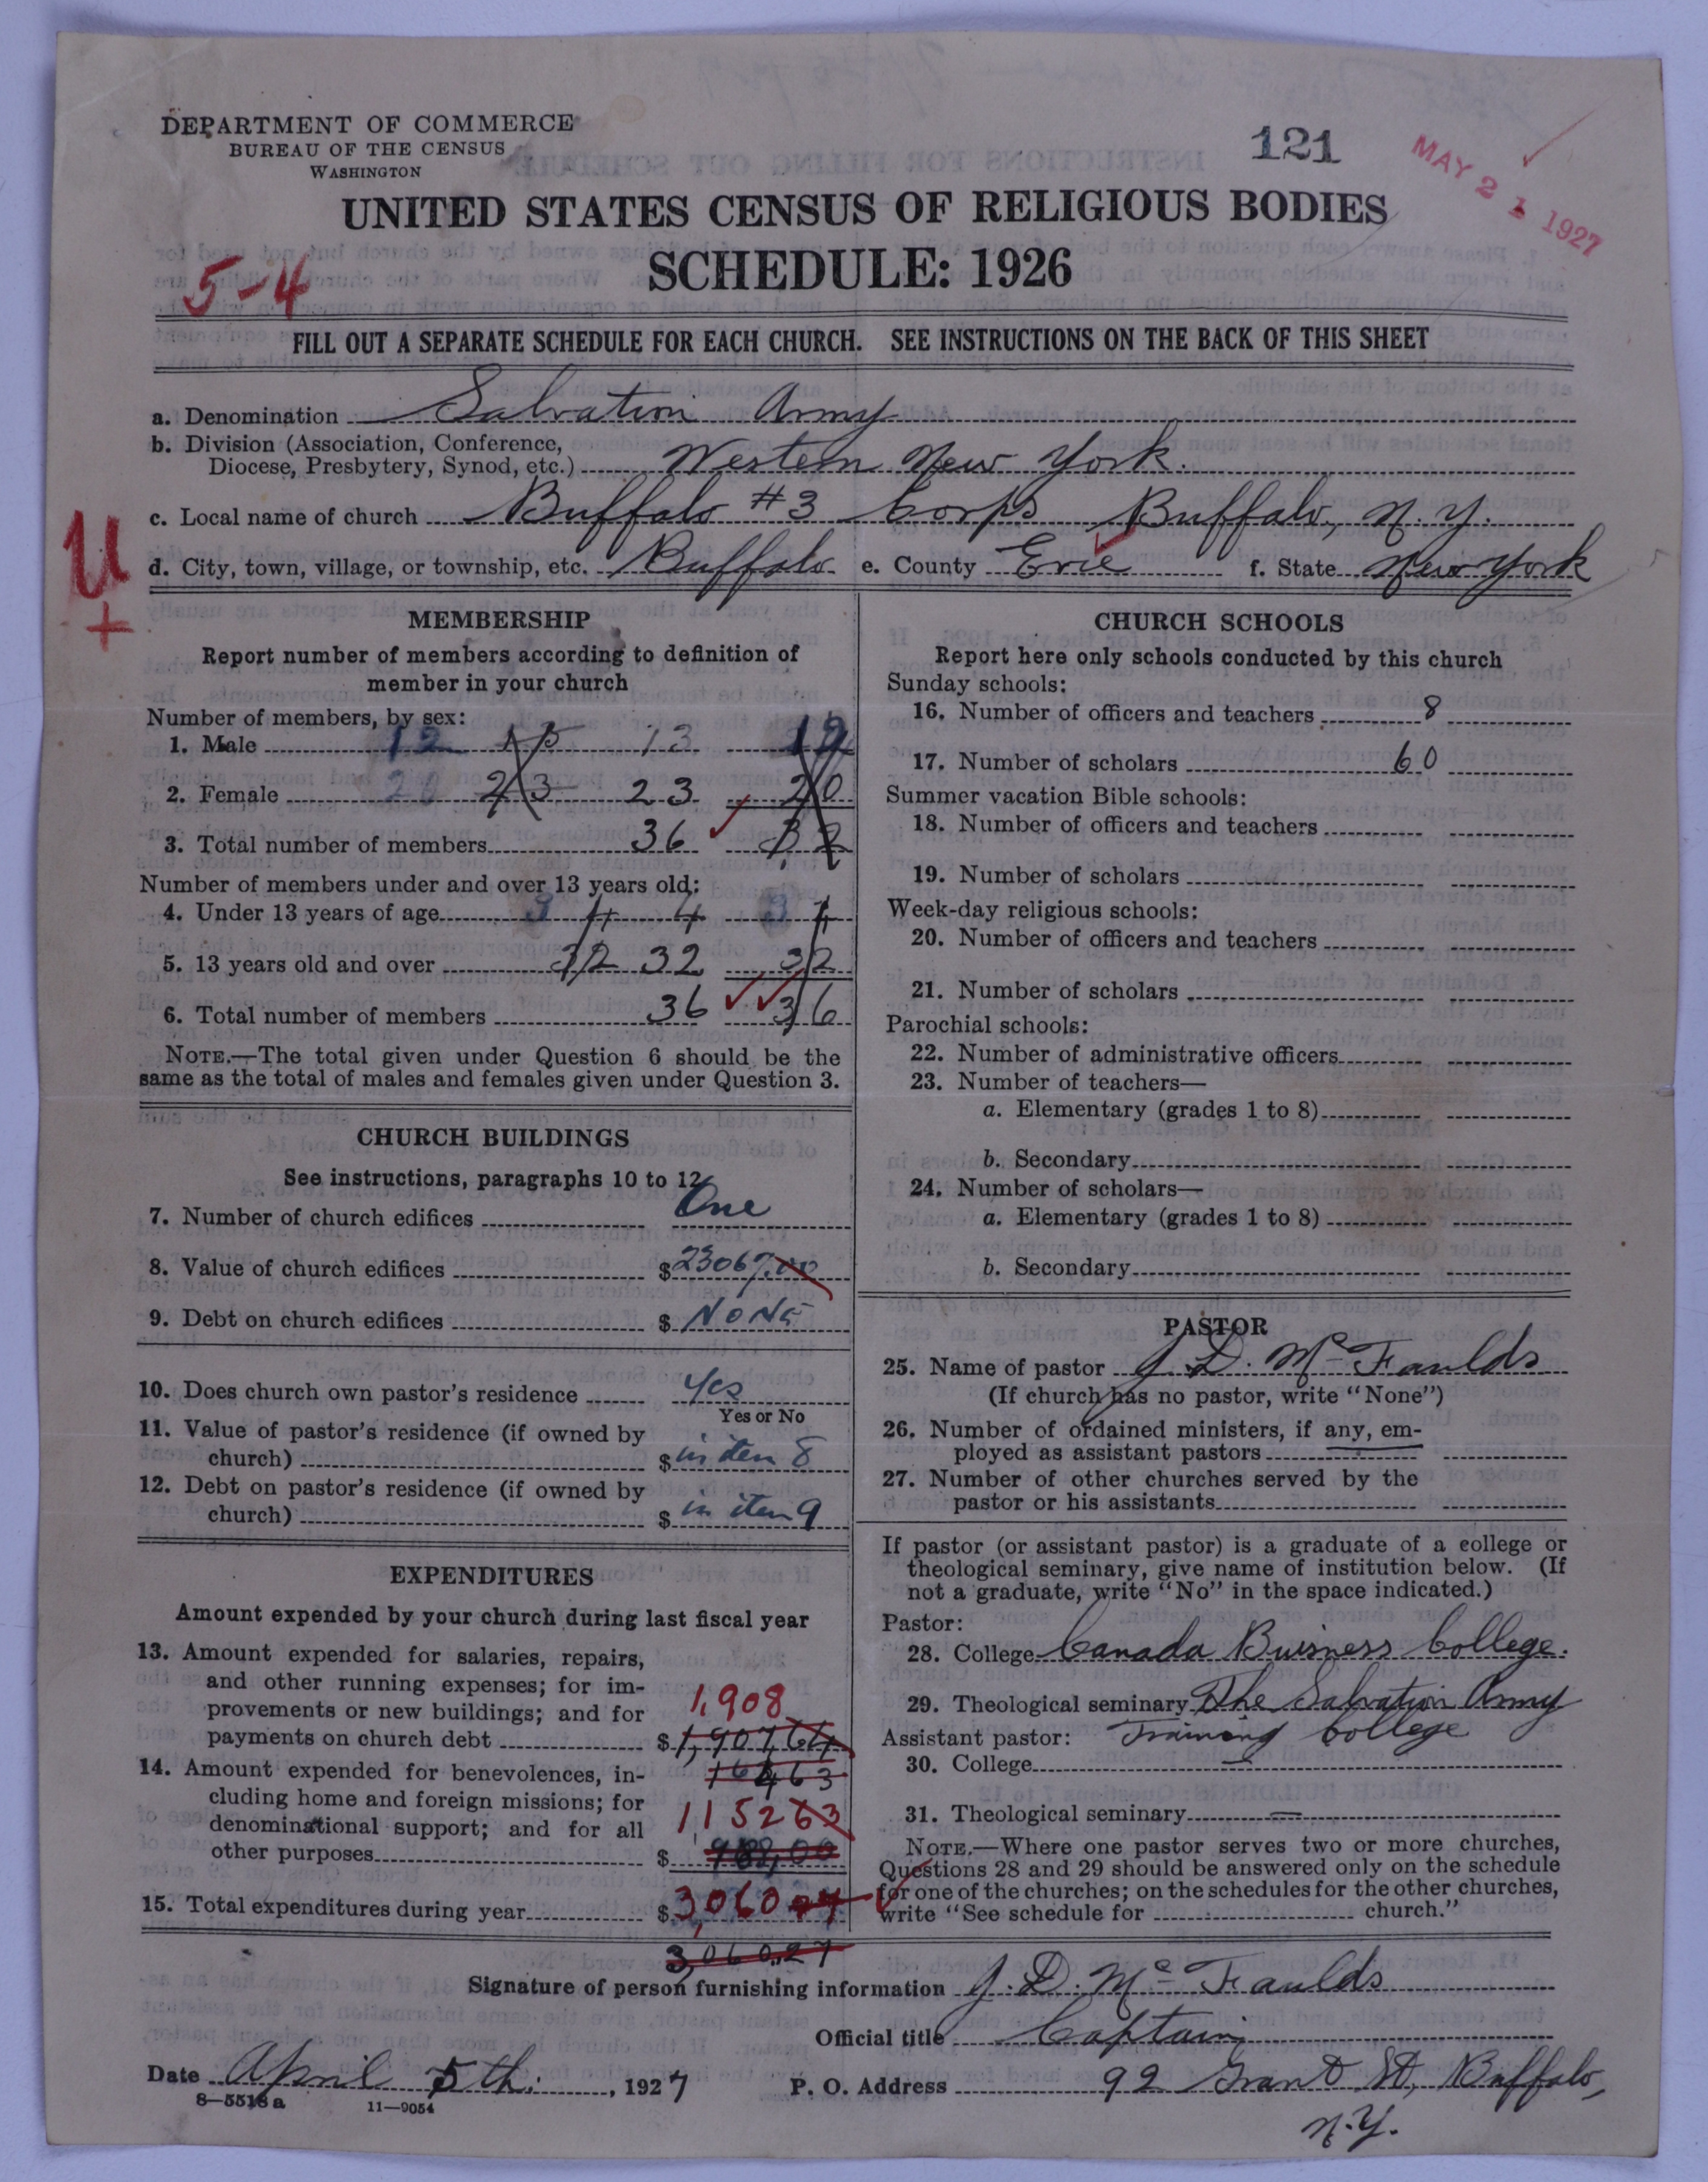 DEPARTMENT OF COMMERCE
BUREAU OF THE CENSUS
WASHINGTON
121
MAY 21 1927
UNITED STATES CENSUS OF RELIGIOUS BODIES
SCHEDULE: 1926
5-4
FILL OUT A SEPARATE SCHEDULE FOR EACH CHURCH. SEE INSTRUCTIONS ON THE BACK OF THIS SHEET
a. Denomination Salvation Army
b. Division (Association, Conference,
Diocese, Presbytery, Synod, etc.) Western New York.
c. Local name of church Buffalo #3 Corps Buffalo, N.Y.
U
+
d. City, town, village, or township, etc. Buffalo e. County Erie f. State New York
MEMBERSHIP
Report number of members according to definition of
member in your church
Number of members, by sex:
1. Male 12 15 13 12
2. Female 20 23 23 20
3. Total number of members 36 32
Number of members under and over 13 years old:
4. Under 13 years of age 4 4 4
5. 13 years old and over 32 32 32
6. Total number of members 36 36
NOTE.—The total given under Question 6 should be the
same as the total of males and females given under Question 3.
CHURCH BUILDINGS
See instructions, paragraphs 10 to 12
7. Number of church edifices One
8. Value of church edifices $23067.00
9. Debt on church edifices $ NONE
10. Does church own pastor's residence Yes
Yes or No
11. Value of pastor's residence (if owned by
church) $ in item 8
12. Debt on pastor's residence (if owned by
church) $ in item 9
EXPENDITURES
Amount expended by your church during last fiscal year
13. Amount expended for salaries, repairs,
and other running expenses; for im-
provements or new buildings; and for 1,908
payments on church debt $ 1,907,64
14. Amount expended for benevolences, in- 164 63
cluding home and foreign missions; for
denominational support; and for all 1152 63
other purposes $ 988,00
15. Total expenditures during year $ 3,060 27
3,060.27
CHURCH SCHOOLS
Report here only schools conducted by this church
Sunday schools:
16. Number of officers and teachers 8
17. Number of scholars 60
Summer vacation Bible schools:
18. Number of officers and teachers
19. Number of scholars
Week-day religious schools:
20. Number of officers and teachers
21. Number of scholars
Parochial schools:
22. Number of administrative officers
23. Number of teachers—
a. Elementary (grades 1 to 8)
b. Secondary
24. Number of scholars—
a. Elementary (grades 1 to 8)
b. Secondary
PASTOR
25. Name of pastor J. D. Mc Faulds
(If church has no pastor, write "None")
26. Number of ordained ministers, if any, em-
ployed as assistant pastors
27. Number of other churches served by the
pastor or his assistants
If pastor (or assistant pastor) is a graduate of a college or
theological seminary, give name of institution below. (If
not a graduate, write "No" in the space indicated.)
Pastor:
28. College Canada Buisness College.
29. Theological seminary The Salvation Army
Assistant pastor: Training College
30. College —
31. Theological seminary —
NOTE.—Where one pastor serves two or more churches,
Questions 28 and 29 should be answered only on the schedule
for one of the churches; on the schedules for the other churches,
write "See schedule for church."
Signature of person furnishing information J. D. Mc Faulds
Official title Captain
Date April 5th. , 1927 P. O. Address 92 Grant St, Buffalo,
8—5518 a 11—9054
N.Y.